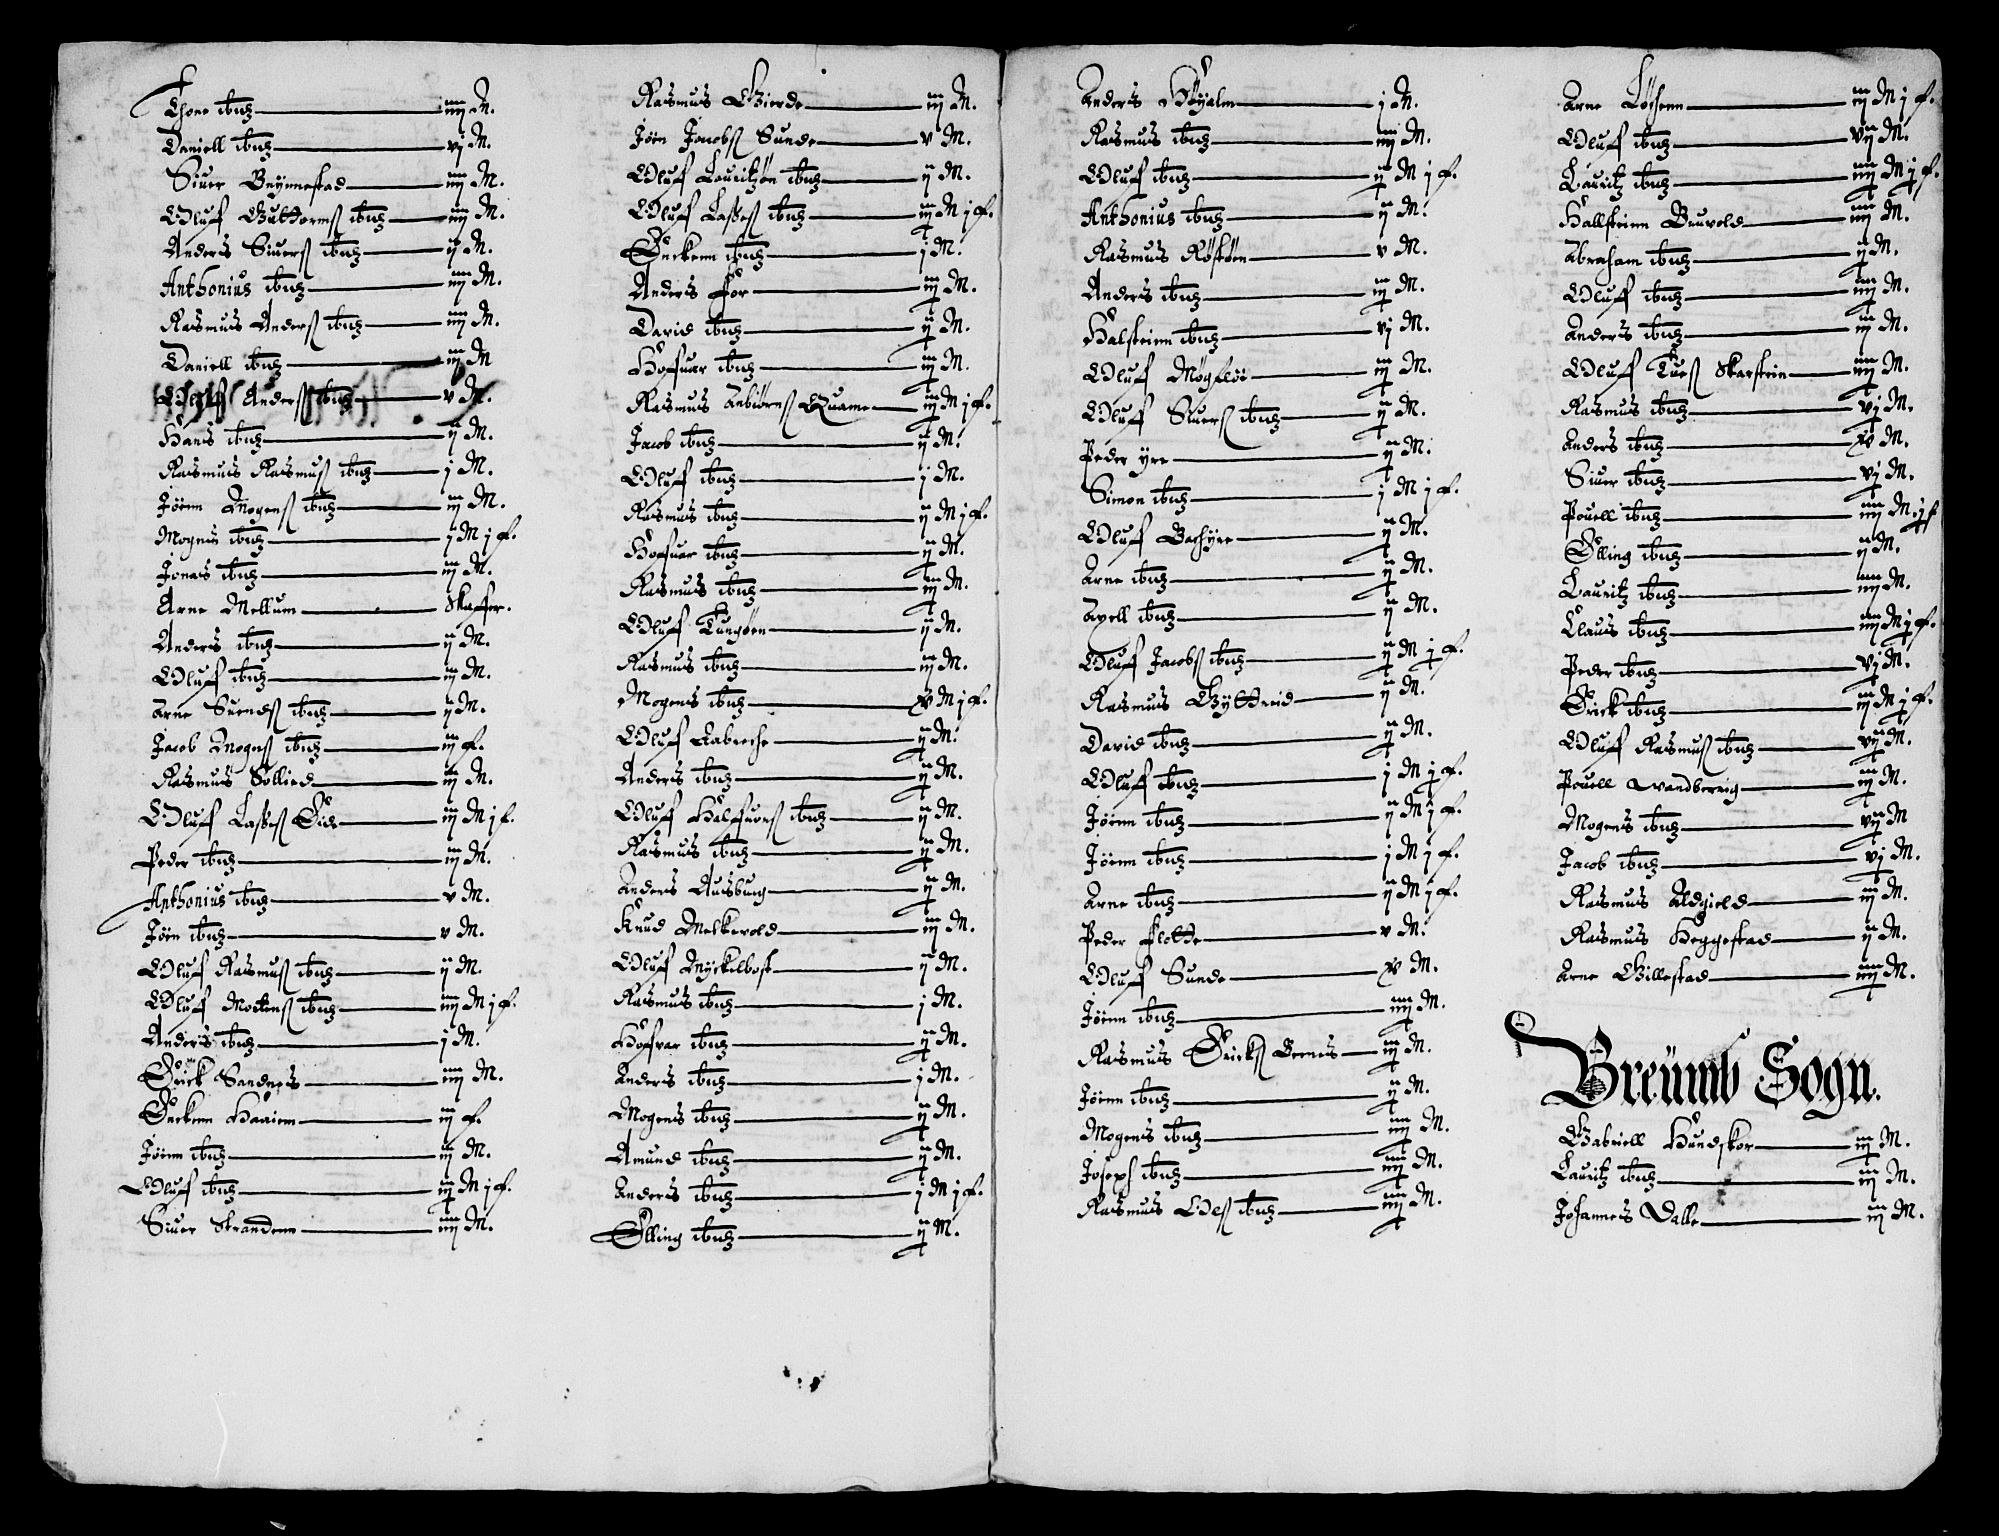 Thore ibid iiij M.
Daniell ibid vj M.
Siuer Brynnestad iiij M.
Oluff Guttorms ibid iiij M.
Anders Siuers ibid ij M.
Anthonius ibid iiij M.
Rasmus Anders ibid iiij M.
Daniell ibid iij M
Oluff Anders ibid v M.
Hans ibid ij M.
Rasmus Rasmus ibid j M.
Jöenn Mogens ibid iij M.
Mogens ibid j M j f.
Jonas ibid iij M.
Arne Mellum Skaffer.
Anders ibid ij M.
Oluff ibid iij M.
Arne Suends ibid ij M.
Jacob Mogns ibid iij f.
Rasmus Sollied iij M.
Oluff Lasses Eid iij M j f.
Peder ibid iij M.
Anthonius ibid v M.
Jöen ibid v M.
Oluff Rasmus ibid ij M.
Oluff Mortens ibid iiij M j f.
Anders ibid j M.
Erick Sandnes iiij M.
Enckenn Haaiem iij f.
Jöenn ibid ij M.
Oluff ibid iij M j f.
Siuer Strandenn iiij M.
Rasmus Gierde iij M.
Jöen Jacobs Sunde v M.
Oluff Lauritzön ibid ij M.
Oluff Lasses ibid iij M j f.
Enckenn ibid j M.
Anders For iij M.
David ibid ij M.
Hofuar ibid iij M.
Rasmus Anbiörns Quame iij M j f.
Jacob ibid ij M.
Oluff ibid j M.
Rasmus ibid ij M j f.
Hofuar ibid ij M.
Rasmus ibid iij M.
Oluff Tungöen ij M.
Rasmus ibid iij M.
Mogens ibid xv M j f.
Oluff Aabreche ij M.
Anders ibid ij M.
Oluff Halfuors ibid ij M.
Rasmus ibid ij M.
Anders Ausburg ij M.
Knud Melkevold iij M.
Oluff Myckelbost ij M.
Rasmus ibid j M.
Hofvar ibid ij M.
Anders ibid j M.
Mogens ibid ij M.
Amund ibid ij M.
Anders ibid j M j f.
Elling ibid ij M.
Anders Höyalm j M.
Rasmus ibid iiij M.
Oluff ibid ij M j f.
Anthonius ibid ij M.
Rasmus Röstöen v M.
Anders ibid iij M.
Halsteinn ibid vj M.
Oluff Mögfloe iij M.
Oluff Siuers ibid ij M.
Peder yre ij M.
Simon ibid j M j f.
Oluff Bachyre ij M.
Arne ibid ij M.
Axell ibid ij M.
Oluff Jacobs ibid ij M j f.
Rasmus Gyttreid ij M.
David ibid ij M.
Oluff ibid j M j f.
Jöenn ibid ij M j f.
Jöenn ibid j M j f.
Arne ibid ij M j f.
Peder Flotte v M.
Oluff Sunde xv M.
Jöenn ibid iiij M.
Rasmus Ericks Bernus iij M.
Jöenn ibid ij M.
Mogens ibid iiij M.
Joseph ibid iiij M.
Rasmus Oles ibid iiij M.
Arne Löchenn iij M j f.
Oluff ibid vij M.
Lauritz ibid iiij M j f.
Hallsteinn Bruvold iiij M.
Abraham ibid ij M.
Oluff ibid iiij M.
Anders ibid iij M.
Oluff Tues Skarstein iiij M.
Rasmus ibid vj M.
Anders ibid xv M.
Siuer ibid vj M.
Pouell ibid iiij M j f
Elling ibid ij M.
Lauritz ibid iiij M.
Claus ibid iiij M j f.
Peder ibid vj M.
Erick ibid iij M j f.
Oluff Rasmus ibid vij M.
Pouell wandberrig iij M.
Mogens ibid vij M
Jacob ibid vj M.
Rasmus Aldgield iij M.
Rasmus Heggestad ij M.
Arne Gillestad iiij M.
Breümb Sogn.
Gabriell Hundskor iij M.
Lauritz ibid iij M.
Johannes Dalle iij M.